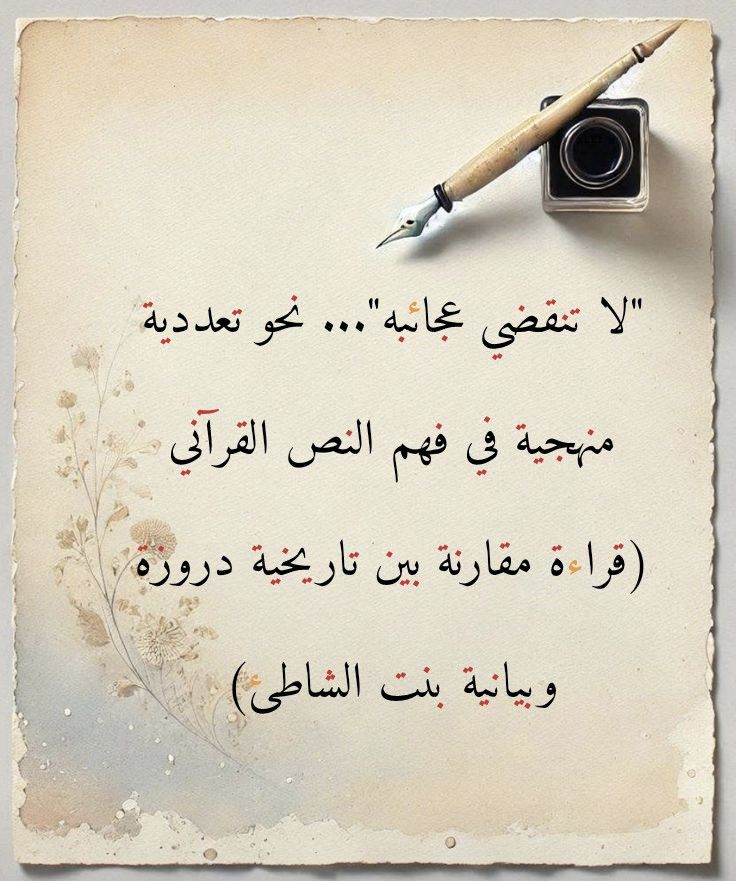 "لا تنقضي عجائبه"... نحو تعددية
منهجية في فهم النص القرآني
(قراءة مقارنة بين تاريخية دروزة
وبيانية بنت الشاطئ)